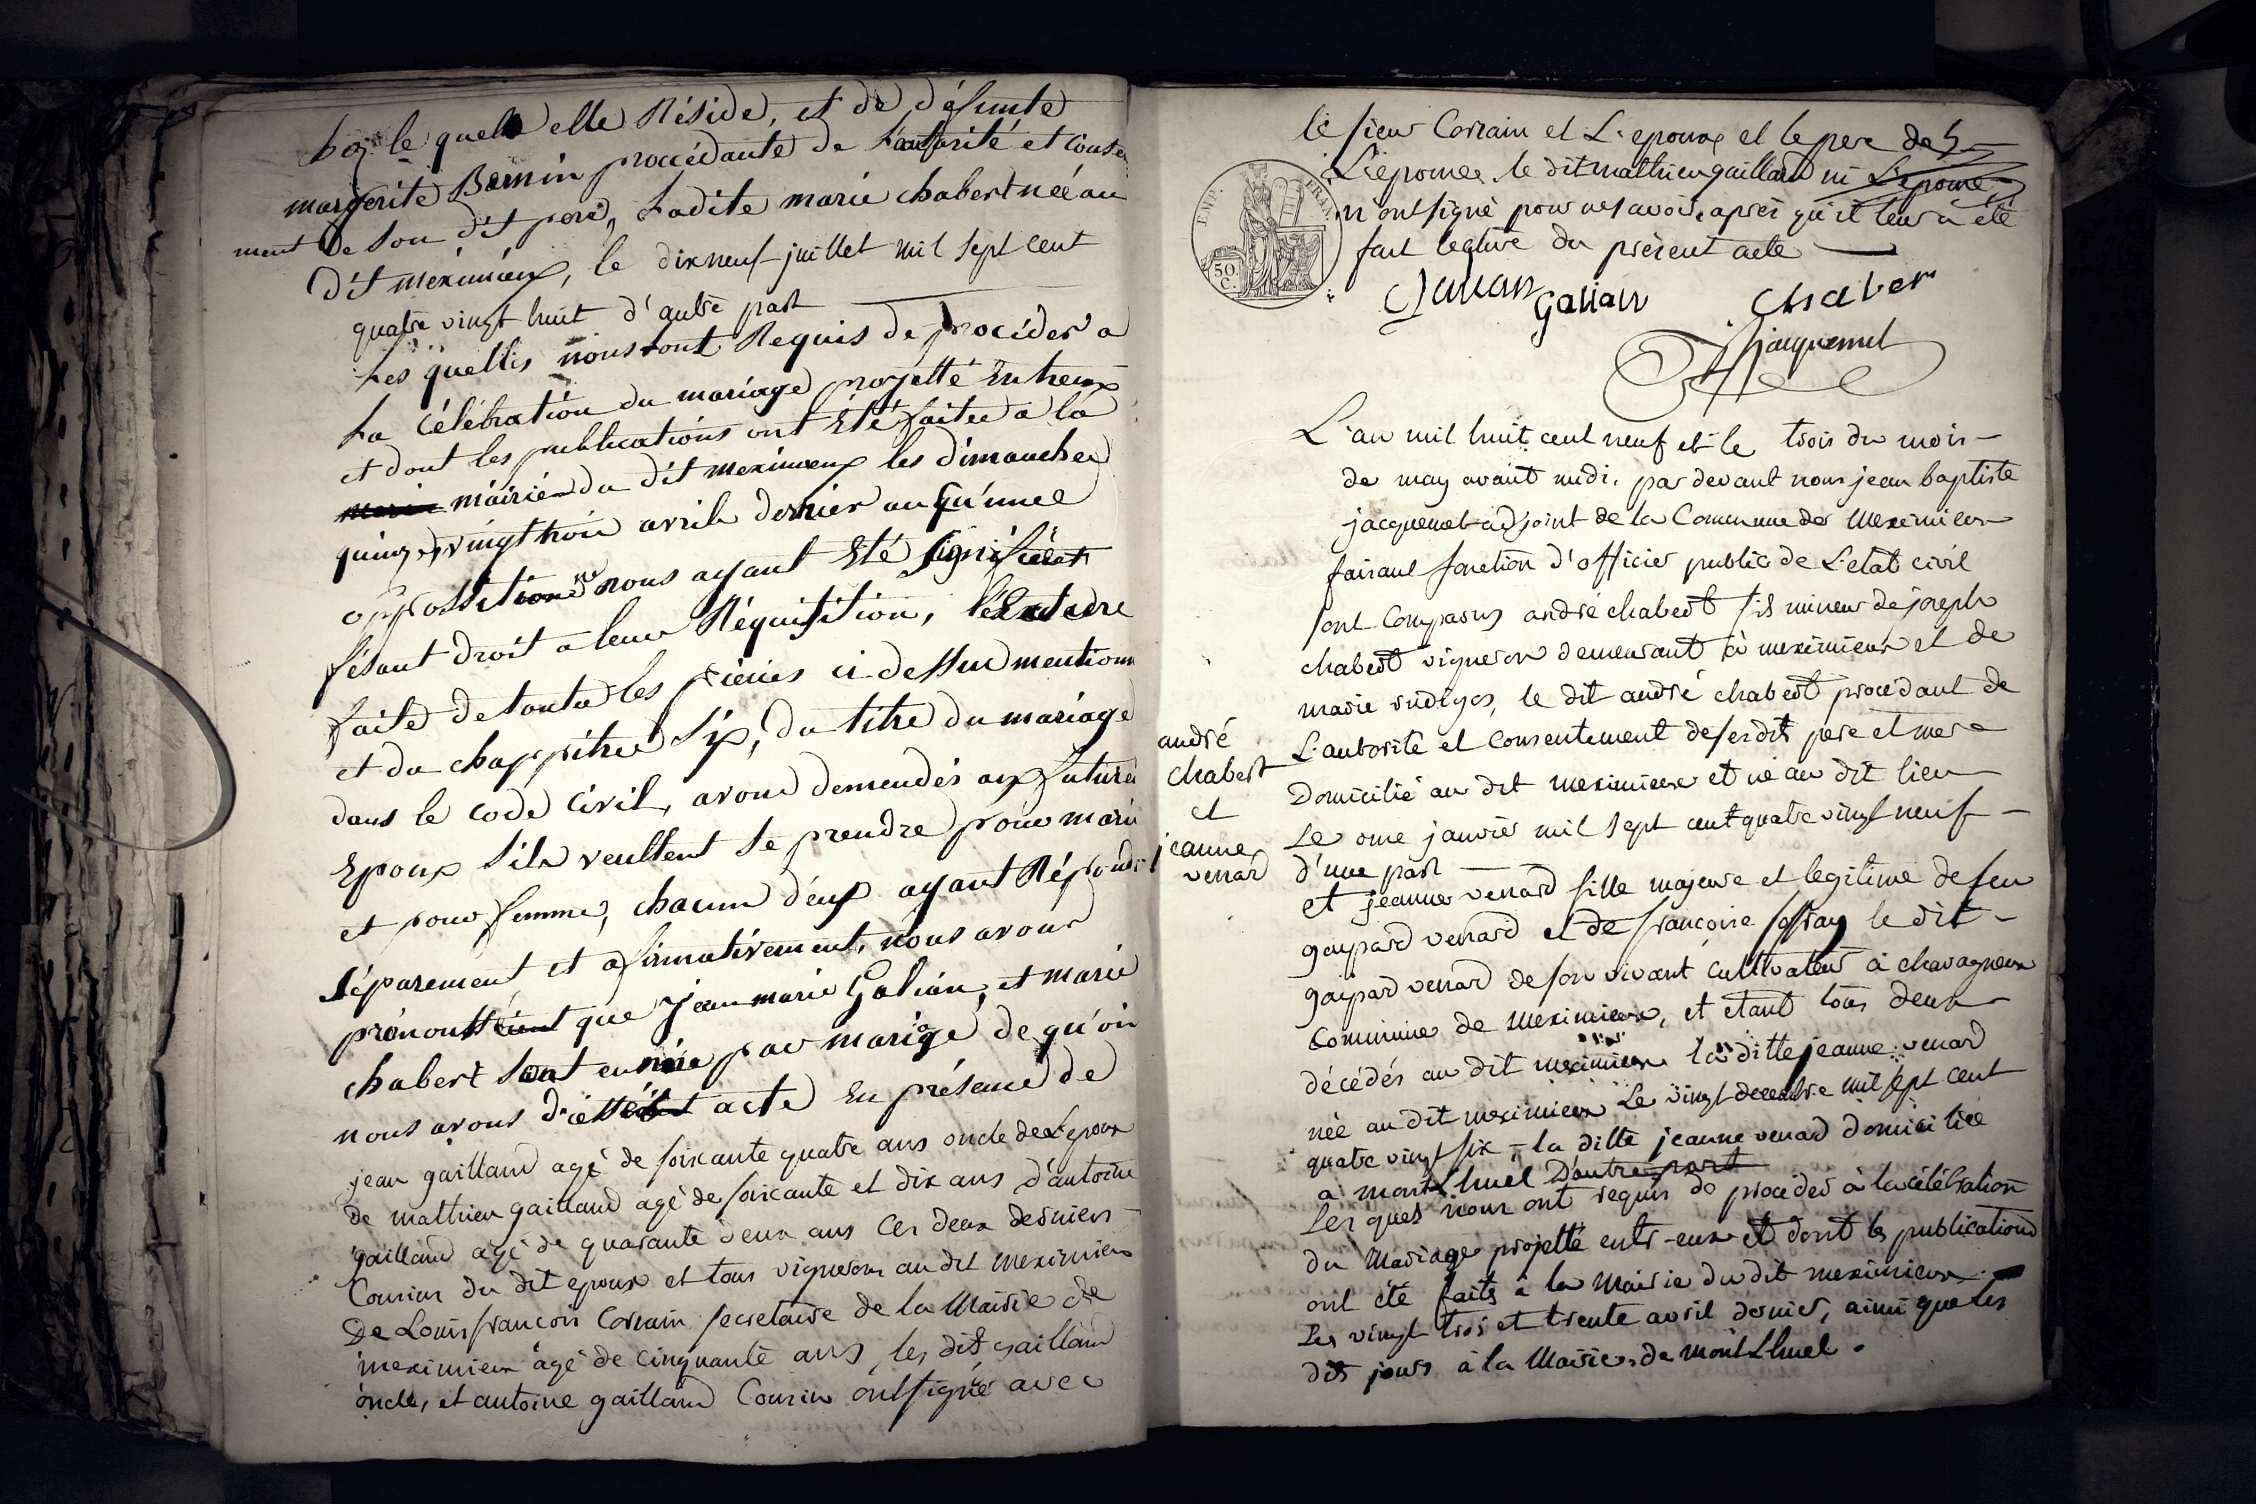 le quel elle Réside, et de défunte
margerite procédante de L'autorité et conse
ment de son dit pere, Ladite marie chabert née au
dit meximieux, le dixneuf juillet mil sept cent
quatre vingt huit d'autre part
Les quelles nous ont Requis de procéder a
La célébration du mariage projetté Entreux
et dont les publications ont Eté faites a la
mairie du dit meximieux les dimanches
quinze, vingt trois avril dernier au qu'unne
opposition ne nous ayant Eté
fésant droit a leur Réquisition,
faite de toutes les pieces ci dessus mentionn
et du chappitre Six, du titre du mariage
dans le code Civil, avons demendés aux futurs
Epoux S'ils veullent Se prendre pour mari
et pour femme, chacun d'eux ayant Répondu
Séparement et afirmativement, nous avons
prenoust que Jean marie Galian, et marie
chabert Sont par mariage de qu'oi
nous avons acte En présence de
jean gailland agé de soixante quatre ans oncle de Lepoux
de mathieu gailland agé de soixante et dix ans d'antoine
gailland agé de quarante deux ans Ces deux derniers
Cousins du dit epoux et tous vignerons au dit meximieux
De Louis francois Corrain secretaire de la Mairie de
meximieux agé de cinquante ans, les dit gailland
oncle, et antoine gailland Cousin ont signé avec
le sieur Corrain et L'epoux et le pere de
L'epouse le dit mathieu gailland ni L'epouse
n'ont signé pour ne savoir apres qu'il leur a été
fait lecture du présent acte
EMP. FRAN.
50. C.
Galian Chaber
Jacquemet
L'an mil huit cent neuf et le trois du mois
de may avant midi, par devant nous jean baptiste
jacquemet adjoint de la Commune de Meximieux
faisant fonction d'officier public de L'etat civil
sont Comparus andré chabert fils mineur de joseph
chabert vigneron demeurant à meximieux et de
marie, le dit andré chabert procédant de
L'autorite et consentement de ses dits pere et mere
andré
chabert
et
jeanne
venard
Domicilié au dit meximieux et né au dit lieu
Le onze janvier mil sept cent quatre vingt neuf
d'une part
et jeanne venard fille majeure et legitime de feu
gaspard venard et de françoise le dit
gaspard venard de son vivant cultivateur à chavagneux
Commune de meximieux, et etant tous deux
décédés au dit meximieux la ditte jeanne venard
née au dit meximieux Le vingt decembre mil sept cent
quatre vingt six, la ditte jeanne venard domiciliée
a montLluel D'autre part
Les quels nous ont requis de proceder à la célébration
du Mariage projetté entr-eux et dont les publications
ont été faits à la Mairie du dit meximieux
Les vingt trois et trente avril dernier, ainsi que les
dits jours à la Mairie de montLluel.